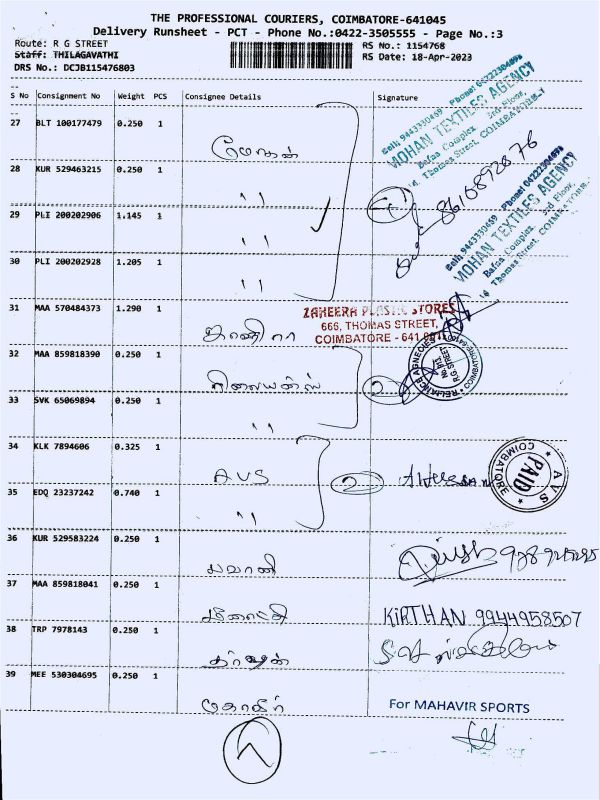 THE PROFESSIONAL COURIERS, COIMBATORE-641045
Delivery Runsheet - PCT - Phone No.:0422-3505555 - Page No.:3
Route: R G STREET
RS No.: 1154768
Staff: THILAGAVATHI
RS Date: 18-Apr-2023
DRS No.: DCJB115476803
S No Consignment No Weight PCS Consignee Details Signature
27 BLT 100177479 0.250 1 மோகன்
28 KUR 529463215 0.250 1 "
29 PLI 200202906 1.145 1 "
30 PLI 200202928 1.205 1 "
MOHAN TEXTILES AGENCY
Bafna Complex 2nd Floor,
Thomas Street, COIMBATORE-1
8610892076
MOHAN TEXTILES AGENCY
Bafna Complex 2nd Floor,
Thomas Street, COIMBATORE-1
31 MAA 570484373 1.290 1
ZAHEERA PLASTIC STORES
666, THOMAS STREET,
COIMBATORE - 641 001
32 MAA 859818390 0.250 1
RELIANCE AGENCIES
R.G STREET
COIMBATORE
33 SVK 65069894 0.250 1 "
34 KLK 7894606 0.325 1 AVS 2
AVS
PAID
COIMBATORE
35 EDQ 23237242 0.740 1 "
36 KUR 529583224 0.250 1 பவானி
37 MAA 859818041 0.250 1 KIRTHAN 9944958507
38 TRP 7978143 0.250 1
39 MEE 530304695 0.250 1
For MAHAVIR SPORTS